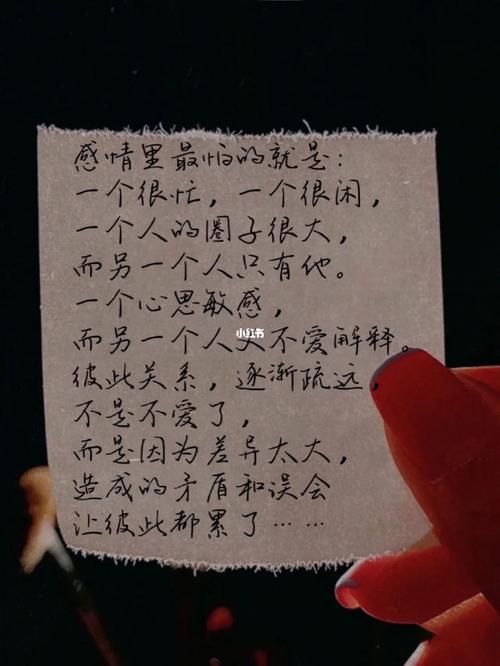 感情里最怕的就是：
一个很忙，一个很闲，
一个人的圈子很大，
而另一个人只有他。
一个心思敏感，
而另一个人又不爱解释。
小红书
彼此关系，逐渐疏远
不是不爱了，
而是因为差异太大，
造成的矛盾和误会
让彼此都累了……